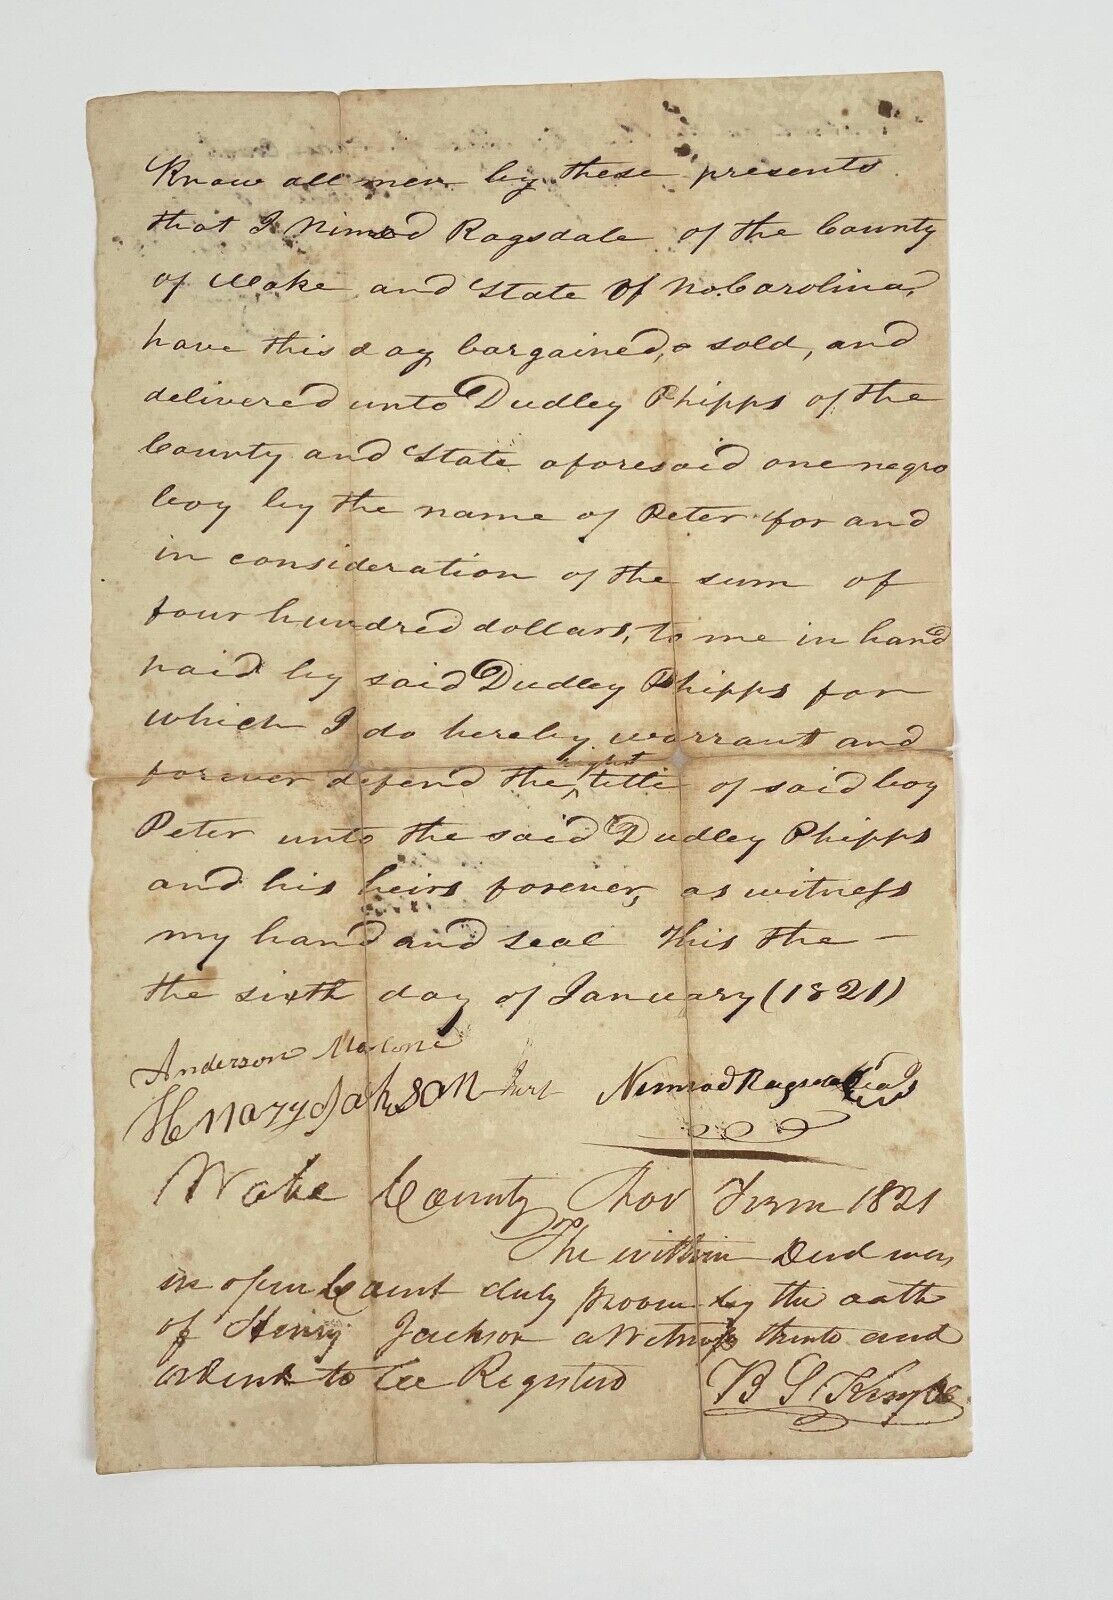 Know all men by these presents
that I Nimrod Ragsdale of the County
of Wake and State of No. Carolina,
have this day bargained, & sold, and
delivered unto Dudley Phipps of the
County and State aforesaid one negro
boy by the name of Peter for and
in consideration of the sum of
four hundred dollars, to me in hand
paid by said Dudley Phipps for
which I do hereby warrant and
forever defend the right title of said boy
Peter unto the said Dudley Phipps
and his heirs forever, as witness
my hand and seal this the –
the sixth day of January (1821)
Anderson Malone
Henary Jakson Jurt Nimrod Ragsdale Seal
Wake County Nov Term 1821
The within Deed was
in open Court duly proven by the oath
of Henry Jackson a Witness thereto and
ordered to be Registered B. S. King CC